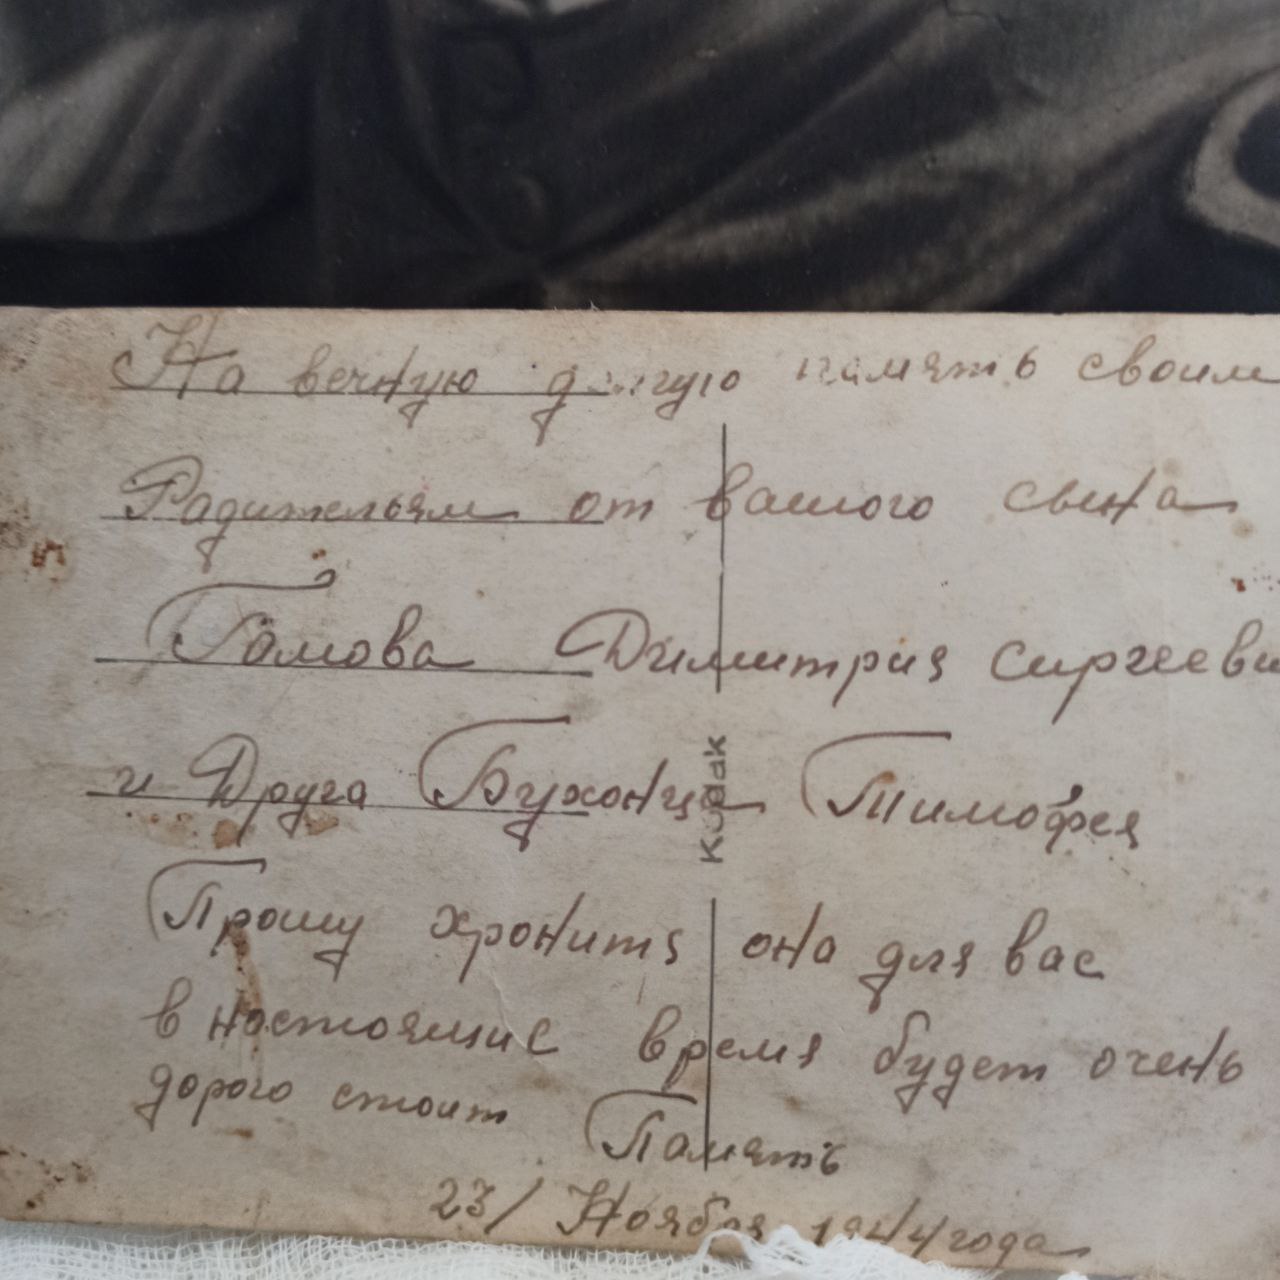 На вечную долгую память своим
Радительям от вашого сына
Гамова Димитрия сиргееви
и Друга Бухонца Тимофея
Kodak
Прошу хронитя она для вас
в настоящие время будет очень
дорого стоит Память
23/ Ноября 1944 года